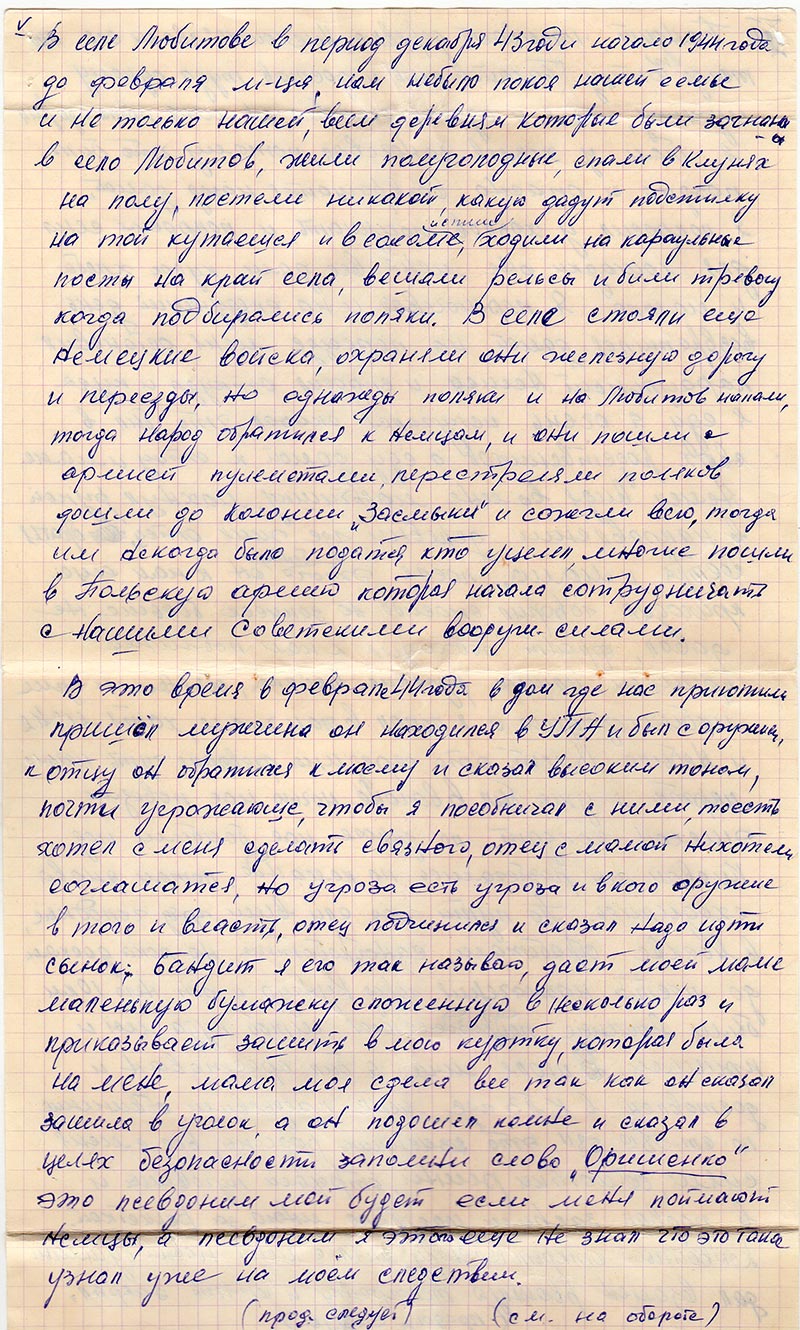 V
В селе Любитове в период декабря 43 годи начало 1944 года
до февраля м-ца, нам небыло покоя нашей семье
и не только нашей, всем деревням которые были загнаны
в село Любитов, жили полуголодные, спали в клунях
на полу, постели никакой, какую дадут подстилку
на той кутаешся и в соломе, ходили на караульные
посты на край села, вешали рельсы и били тревогу
когда подбирались поляки. В селе стояли еще
Немецкие войска, охраняли они железную дорогу
и переезды, но однажды поляки и на Любитов напали,
тогда народ обратился к Немцам, и они пошли с
армией пулеметами, перестреляли поляков
дошли до колонии „Засмыки" и сожгли всю, тогда
им некогда было податся кто уцелел, многие пошли
в Польскую армию которая начала сотрудничать
с нашими Советскими вооруж. силами.
В это время в феврале 44 года в дом где нас приютили
пришёл мужчина он находился в УПА и был с оружием,
к отцу он обратился к моему и сказал высоким тоном,
почти угрожающе, чтобы я пособничал с ними, тоесть
хотел с меня сделать связного, отец с мамой нихотели
соглашатся, но угроза есть угроза и в кого оружие
в того и власть, отец подчинился и сказал надо идти
сынок, Бандит я его так называю, дает моей маме
маленькую бумажку сложенную в несколько раз и
приказывает зашить в мою куртку, которая была
на мене, мама моя сдела все так как он сказал
зашила в уголок, а он подошел комне и сказал в
целях безопасности запомни слово „Оришенко"
это псевдоним мой будет если меня поймают
Немцы, а псевдоним я этого еще не знал что это такое
узнал уже на моём следствии.
(прод. следует) (см. на обороте)